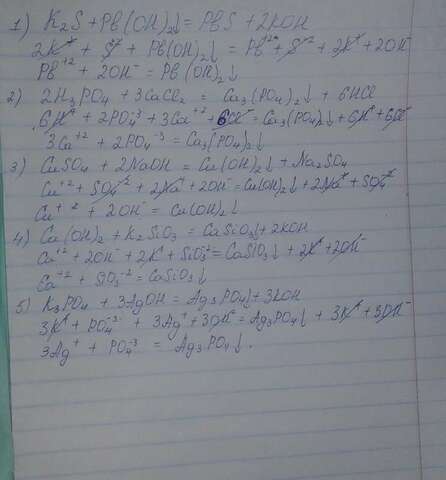 1) K2S + Pb(OH)2↓ = PbS + 2KOH
2K⁺ + S⁻² + Pb(OH)2↓ = Pb⁺² + S⁻² + 2K⁺ + 2OH⁻
Pb⁺² + 2OH⁻ = Pb(OH)2↓
2) 2H3PO4 + 3CaCl2 = Ca3(PO4)2↓ + 6HCl
6H⁺ + 2PO4⁻³ + 3Ca⁺² + 6Cl⁻ = Ca3(PO4)2↓ + 6H⁺ + 6Cl⁻
3Ca⁺² + 2PO4⁻³ = Ca3(PO4)2↓
3) CuSO4 + 2NaOH = Cu(OH)2↓ + Na2SO4
Cu⁺² + SO4⁻² + 2Na⁺ + 2OH⁻ = Cu(OH)2↓ + 2Na⁺ + SO4⁻²
Cu⁺² + 2OH⁻ = Cu(OH)2↓
4) Ca(OH)2 + K2SiO3 = CaSiO3↓ + 2KOH
Ca⁺² + 2OH⁻ + 2K⁺ + SiO3⁻² = CaSiO3↓ + 2K⁺ + 2OH⁻
Ca⁺² + SiO3⁻² = CaSiO3↓
5) K3PO4 + 3AgOH = Ag3PO4↓ + 3KOH
3K⁺ + PO4⁻³ + 3Ag⁺ + 3OH⁻ = Ag3PO4↓ + 3K⁺ + 3OH⁻
3Ag⁺ + PO4⁻³ = Ag3PO4↓.